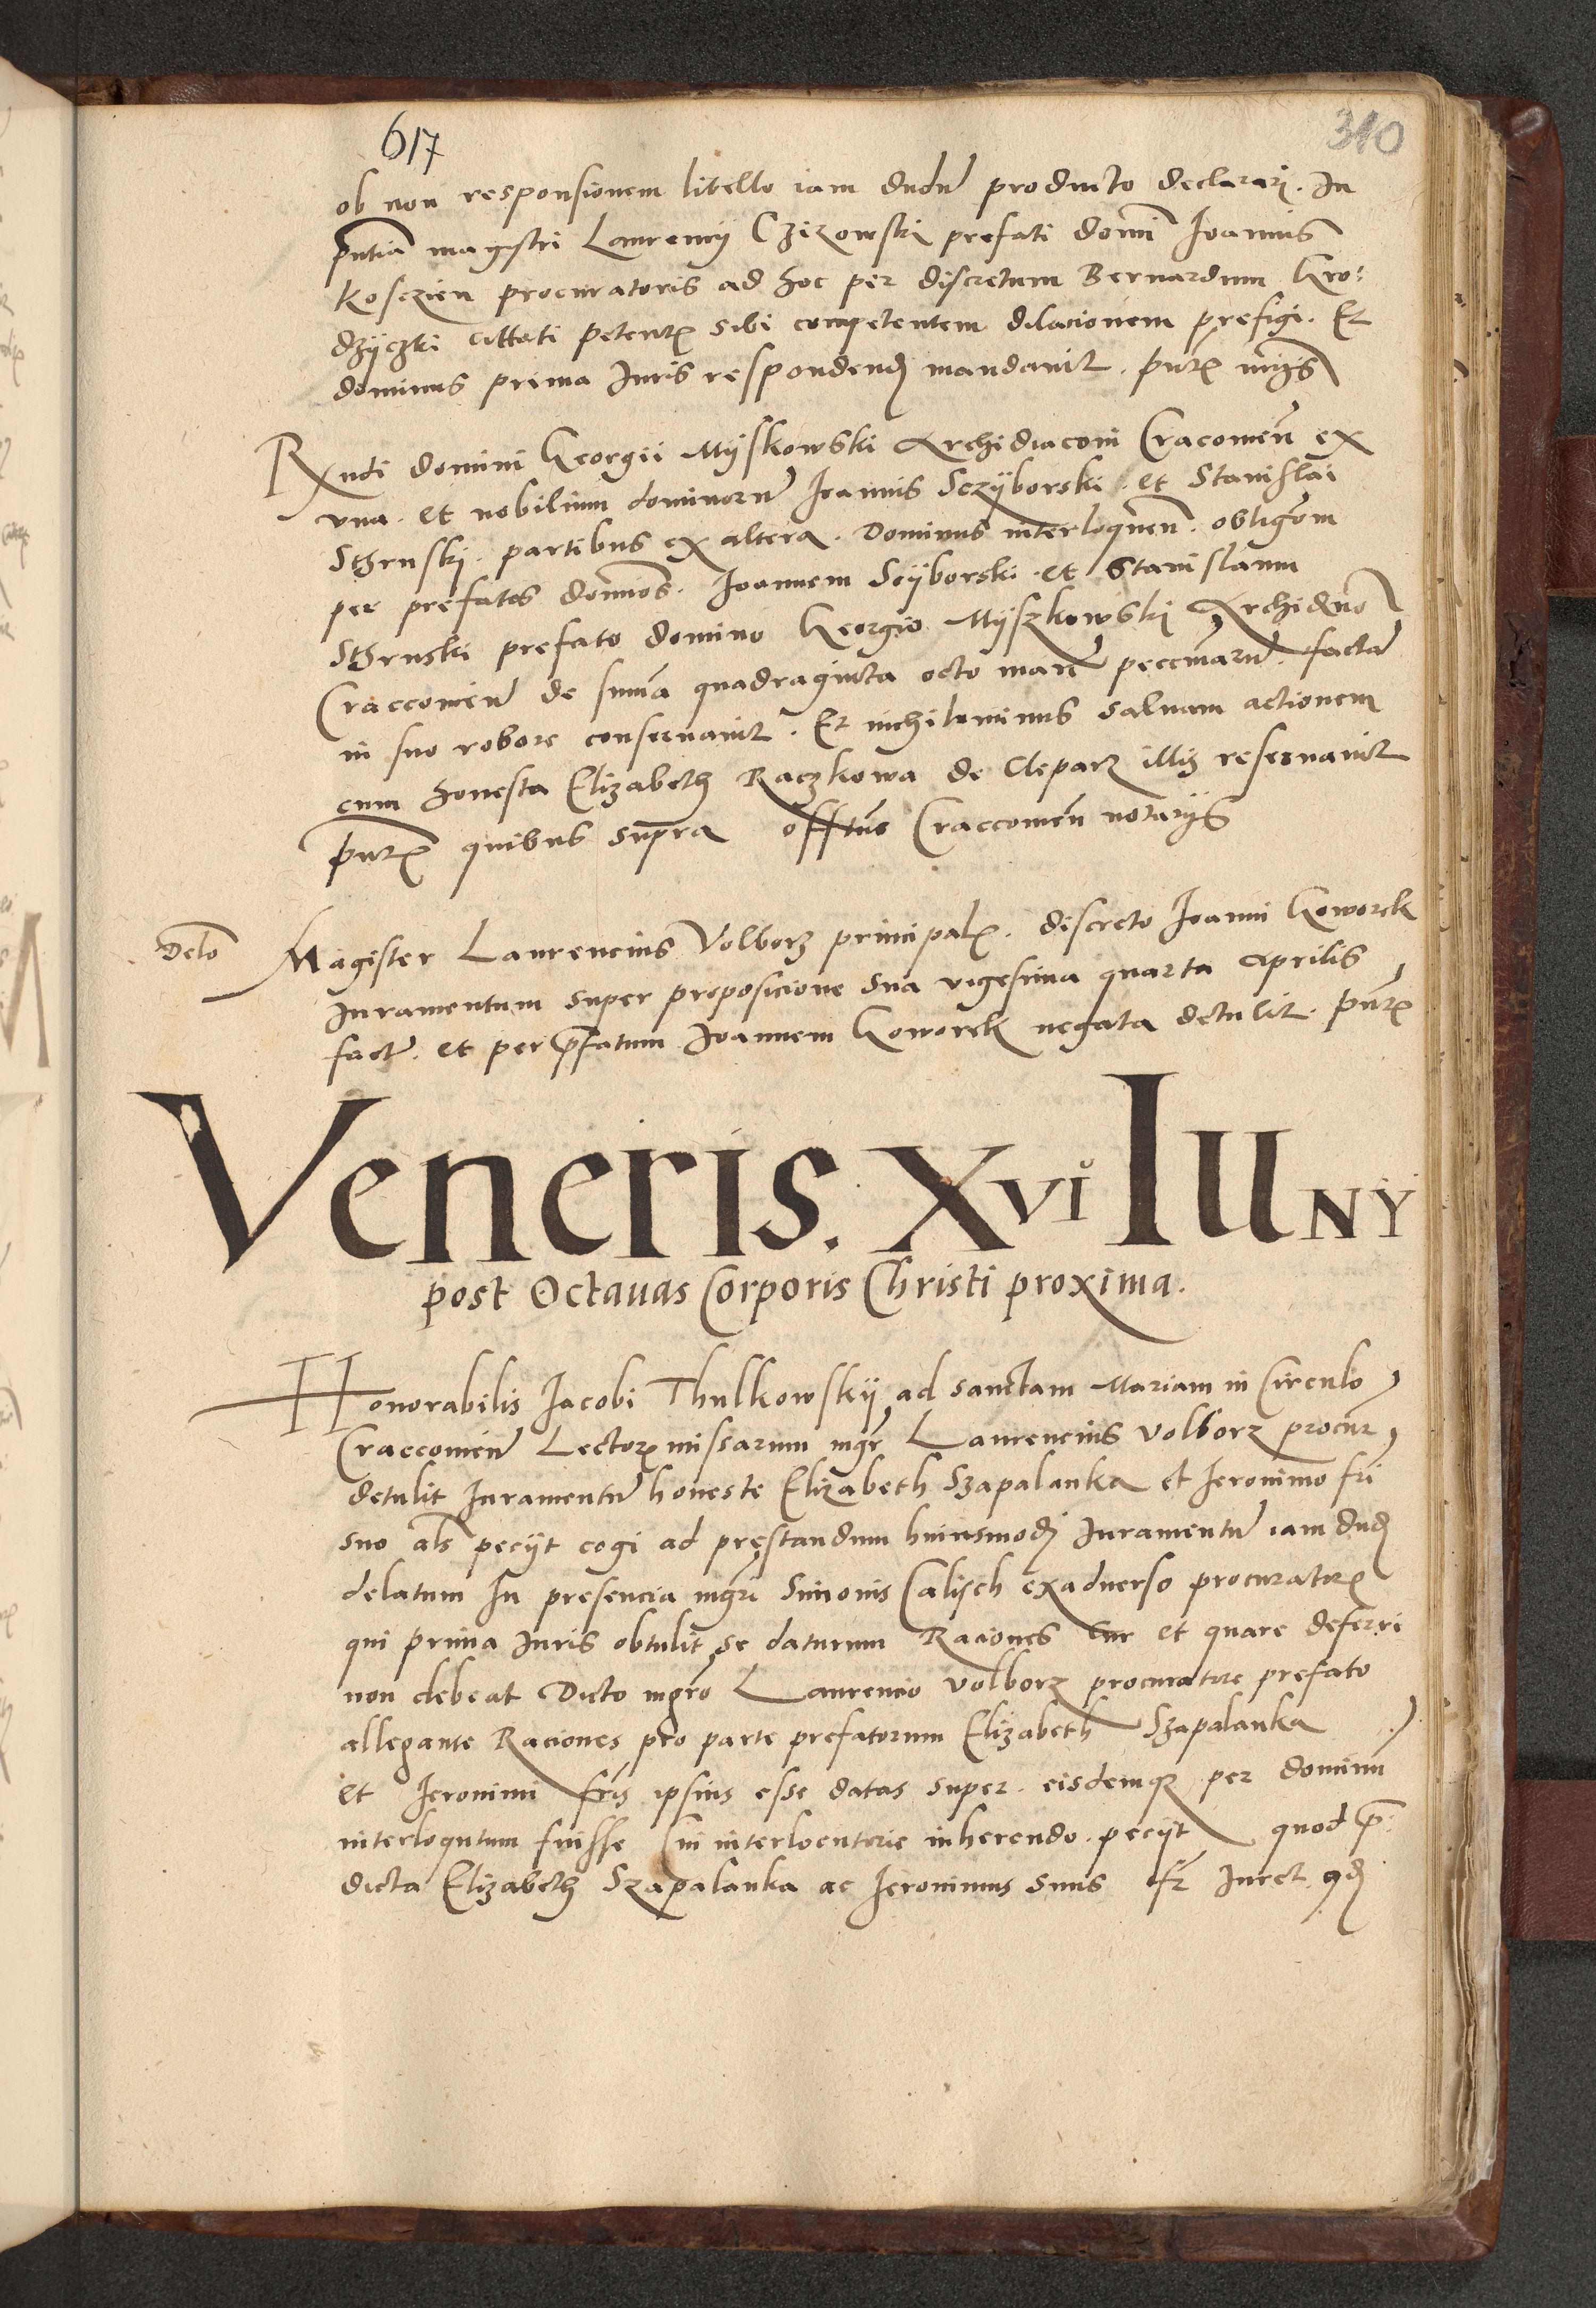 617
310
ob non responsionem libello iam dudũ producto declarari. In
pñtia magistri Laurencij Czizowski prefati domĩ Ioannis
Kosczien procuratoris ad hoc per discretum Bernardum Gro:
dzyczki cittati petentis sibi competentem dilacionem prefigi. Et
dominus prima Iuris respondendj mandauit. pñtibus
Rxndi domini Georgii Myskowski Archidiaconi Cracouień ex
vna. et nobilium dominorũ Ioannis Sczyborski. et Stanislai
Sthruskj. partibus ex altera. Dominus interloqueñ. obligõm
per prefatos dominos. Ioannem Sciyborski. et Stanislaum
Sthruski prefato domino Georgio Myszkowskj Archidño
Craccouień de suma quadraginta octo marč peccũiarũ. factã
in suo robore conseruauit. Et nichilominus saluam actionem
cum honesta Elizabeth Raczkowa de Clepar illis reseruauit
pñtibus quibus supra Craccouień notarijs
Delõ
Magister Laurencius Volborz principalis. discreto Ioanni Goworek
Iuramentum super proposicione sua vigesima quarta Aprilis
factã. et per p̃fatum Ioannem Goworek negata detulit. pñtibus
Veneris. Xvi Iunÿ
post Octauas Corporis Christi proxima.
Honorabilis Iacobi Thulkowskij ad sanctam Mariam in Circulo
Craccouień Lectoris missarum mgr Laurencius Volborz procur
detulit Iuramentũ honeste Elizabeth Szapalanka et Ieronimo fri
suo als pecijt cogi ad prestandum huiusmodj Iuramentũ iam dudum
delatum In presencia mgri Simonis Calisch exaduerso procuratoris
qui prima Iuris obtulit se daturum Raciones cur et quare deferri
non debeat Dicto mgro Laurencio Volborz procuratore prefato
allegante Raciones pro parte prefatorum Elizabeth Szapalanka
et Ieronimi fris ipsius esse datas super. eisdemque per dominũ
interloqutum fuisse Cui interlocutorie inherendo. pecijt quod p̃:
dicta Elizabeth Szapalanka ac Ieronimus suus fr Iuret